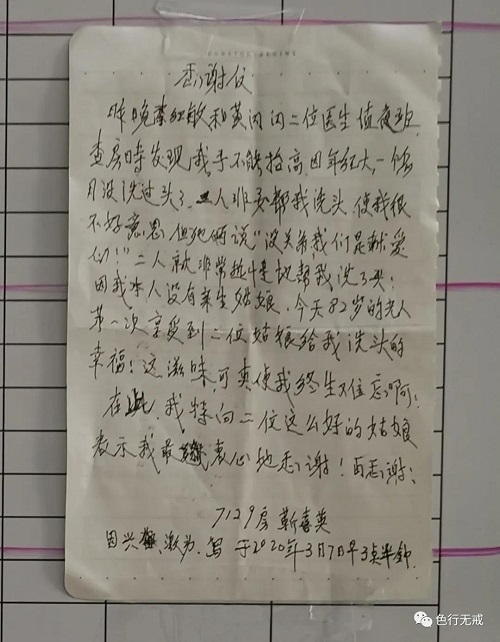 感谢信
昨晚李红敏和黄闪闪二位医生值夜班
查房時发现我手不能抬高因年纪大,一个多
月没洗过头了.二人非要帮我洗头使我很
不好意思但他俩说"没关系我们是献爱
心!"二人就非常热情地帮我洗了头!
因我本人没有亲生姑娘.今天82岁的老人
第一次享受到二位姑娘给我洗头的
幸福!这滋味可真使我终生难忘啊!
在此我特向二位这么好的姑娘
表示我最衷心地感谢!再感谢!
7129房靳喜英
因兴奋、激动.写于2020年3月7日早3点半钟
色行无戒